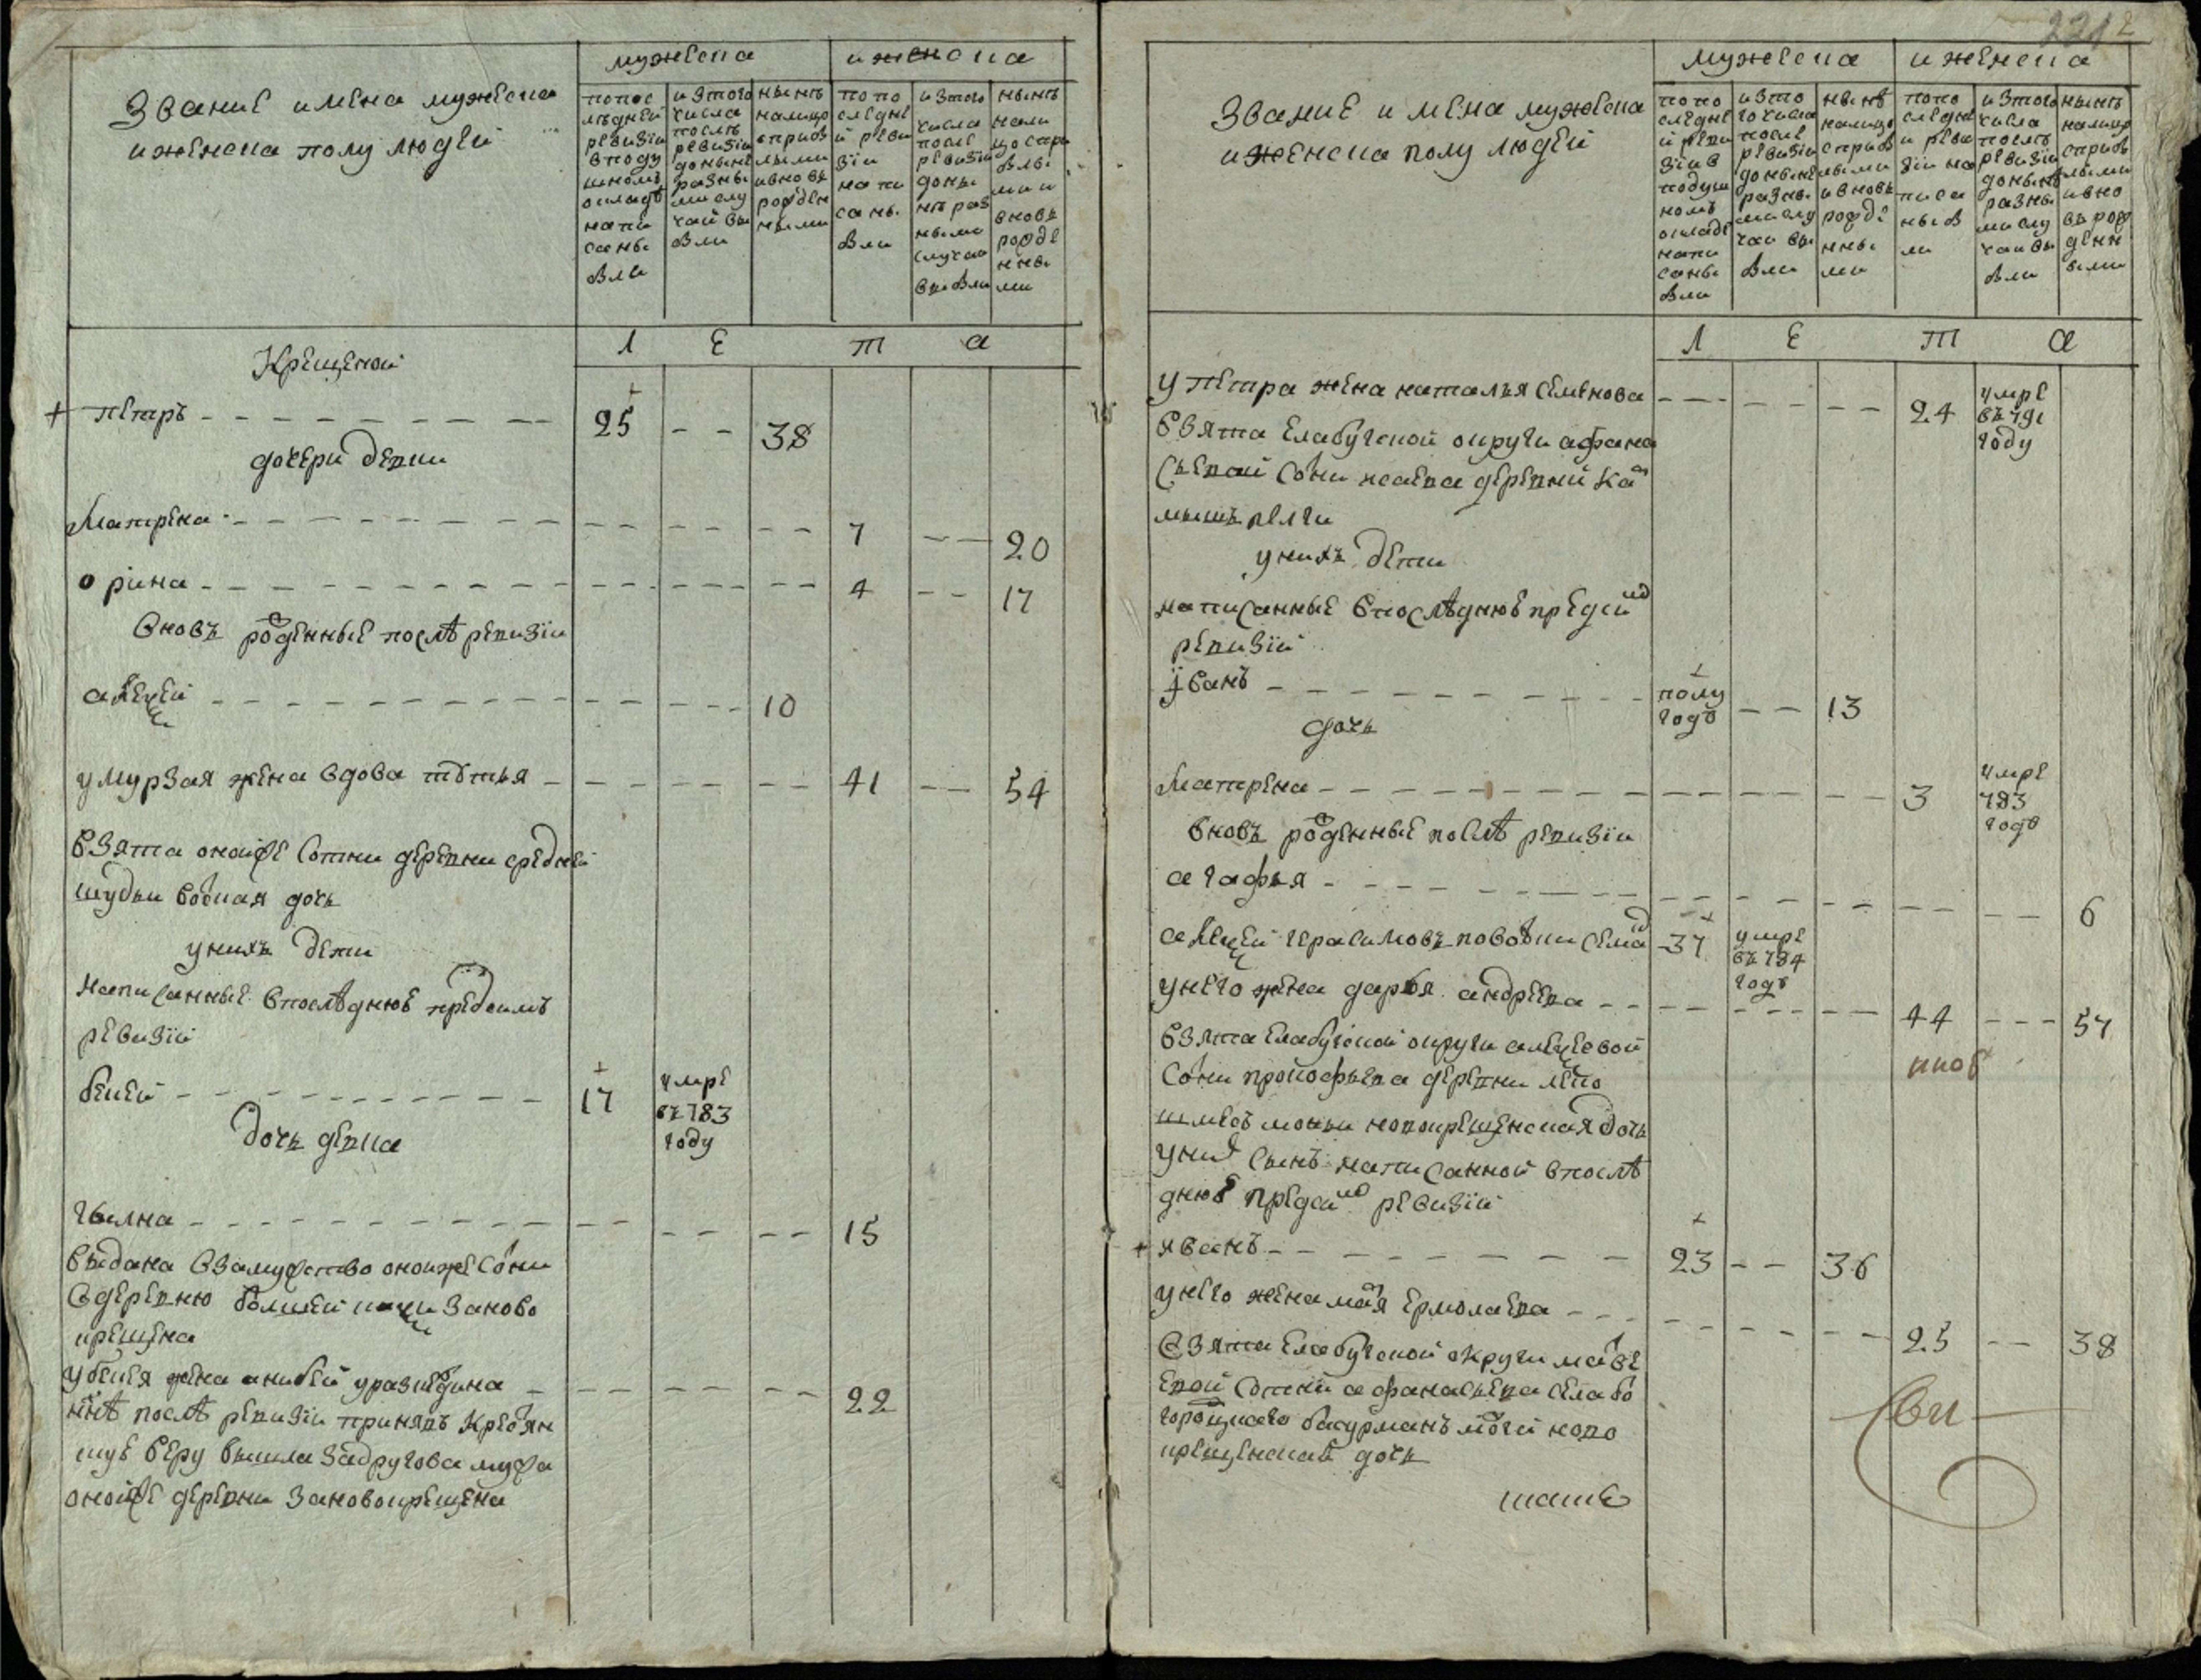 Звание имена мужеска
иженска полу людей
мужеска
иженска
попос
лѣдней
ревизiи
вподу
шномъ
окладѣ
напи
саны
бли
изтого
числа
послѣ
ревизiи
доныне
разны
ми слу
чаи вы
бли
нынѣ
налицо
сприб
лыми
ивновь
рожден
ными
попо
следне
й реви
зiи
напи
саны
бли
изтого
числа
после
ревизiи
доны
нѣ раз
ными
случаи
выбли
нынѣ
нали
цо спри
блы
ми и
вновь
рожде
нны
ми
Л Е Т А
Крещеной
+ петръ 25 38
дочери девки
Матрена 7 20
орина 4 17
вновь рожденные послѣ ревизiи
алеѯей 10
умурзая жена вдова 41 54
взята оноиже сотни деревни средней
шудьи воцкая дочь
унихъ дети
написанные впослѣднюе предсимъ
ревизiи
бекей 17
умре
въ 783
году
дочь девка
15
выдана взамужство оноиже сотни
вдеревню болшей заново
крещена
убекея жена 22
ннѣ послѣ ревизiи принявъ крестьян
скуе веру вышла задругова мужа
оноиже деревни зановокрещена
221 2
Звание имена мужеска
иженска полу людей
мужеска
иженска
попо
следне
й реви
зiи в
подуш
номъ
окладе
напи
саны
бли
изто
го числа
после
ревизiи
доныне
разны
ми слу
чаи вы
бли
нынѣ
налицо
сприб
лыми
и вновь
рожде
нны
ми
попо
следне
й реви
зiи на
писа
ны б
ли
изтого
числа
послѣ
ревизiи
донынѣ
разны
ми слу
чаи вы
бли
нынѣ
налицо
сприб
лыми
ивно
вь рож
денн
ыми
Л Е Т А
у петра жена наталья семенова 24
умре
въ 791
году
взята елабугской округи афана
сьевой сотни исаева деревни ка
мышъ релги
унихъ дети
написанные впослѣднюе предсим
ревизiи
iванъ
полу
годъ
13
дочь
Матрена 3
умре
783
годъ
вновь рожденные послѣ ревизiи
агафья 6
алеѯей герасимовъ 37
умре
въ 784
годъ
унего жена дарья андреева 44 57
взята елабугской округи алеѯеевой
сотни прокофьева деревни
новокрещенская дочь
уних сынъ написанной впослѣ
днюе предсим ревизiи
+ иванъ 23 36
унего жена марья ермолаева 25 38
взята елабугской округи матве
евой сотни афанасьева села бо
городцкого новo
крещенская дочь